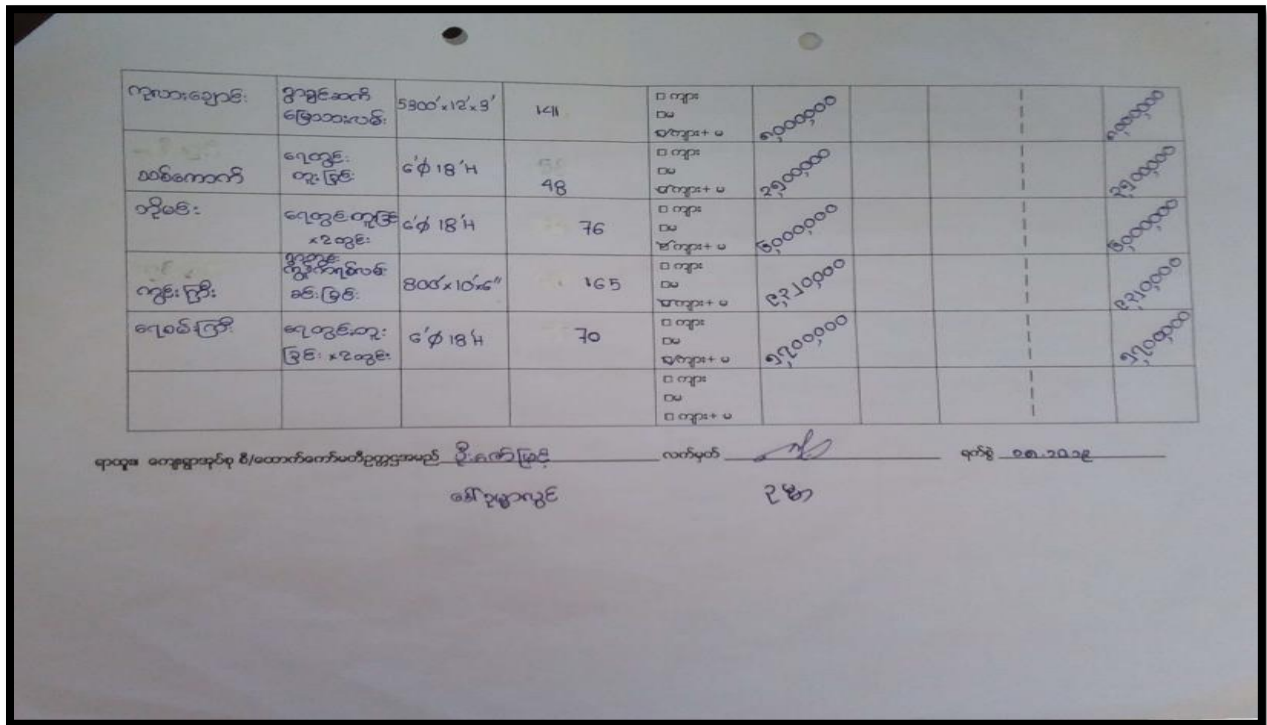 ကုလားချောင်း ရွာချင်းဆက် မြေသားလမ်း 5300'x12'x3' 1411 □ ကျား □မ □ကျား+ မ ၈,၀၀၀,၀၀၀ ၈,၀၀၀,၀၀၀
သစ်ကောက် ရေတွင်း တူးခြင်း 6'ϕ 18'H 48 □ ကျား □မ □ကျား+ မ ၂,၅၀၀,၀၀၀ ၂,၅၀၀,၀၀၀
ရေတွင်းတူးခြင်း x2တွင်း 6'ϕ 18'H 76 □ ကျား □မ □ကျား+ မ ၆,၀၀၀,၀၀၀ ၆,၀၀၀,၀၀၀
ကျွန်းကြီး ကွန်ကရစ်လမ်း ခင်းခြင်း 800'x10'x6" 165 □ ကျား □မ □ကျား+ မ ၉,၃၂၀,၀၀၀ ၉,၃၂၀,၀၀၀
ရေစမ်းကြီး ရေတွင်းတူး ခြင်း x2တွင်း 6'ϕ 18'H 70 □ ကျား □မ □ကျား+ မ ၅,၇၀၀,၀၀၀ ၅,၇၀၀,၀၀၀
□ ကျား □မ □ ကျား+ မ
ရာထူး ကျေးရွာအုပ်စု စီ/ထောက်ကော်မတီဥက္ကဌအမည် ဦးကျော်မြင့် လက်မှတ် ရက်စွဲ
ဒေါ်ဥမ္မာလွင် ဥမ္မာ